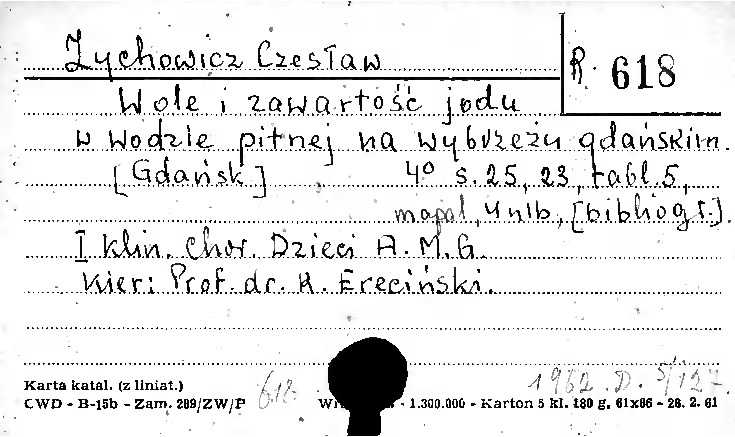 Żychowicz Czesław
R. 618
Wole i zawartość jodu
w wodzie pitnej na wybrzeżu gdańskim.
[Gdańsk] 4° s. 25, 23, tabl. 5,
mapa 1, 4 nlb, [bibliogr.].
I Klin. Chor. Dzieci A. M. G.
Kier: Prof. dr. K. Ereciński.
1962. D. 5/127
Karta katal. (z liniat.)
CWD - B-15b - Zam. 289/ZW/P 618. - 1.300.000 - Karton 5 kl. 180 g. 61x86 - 28. 2. 61